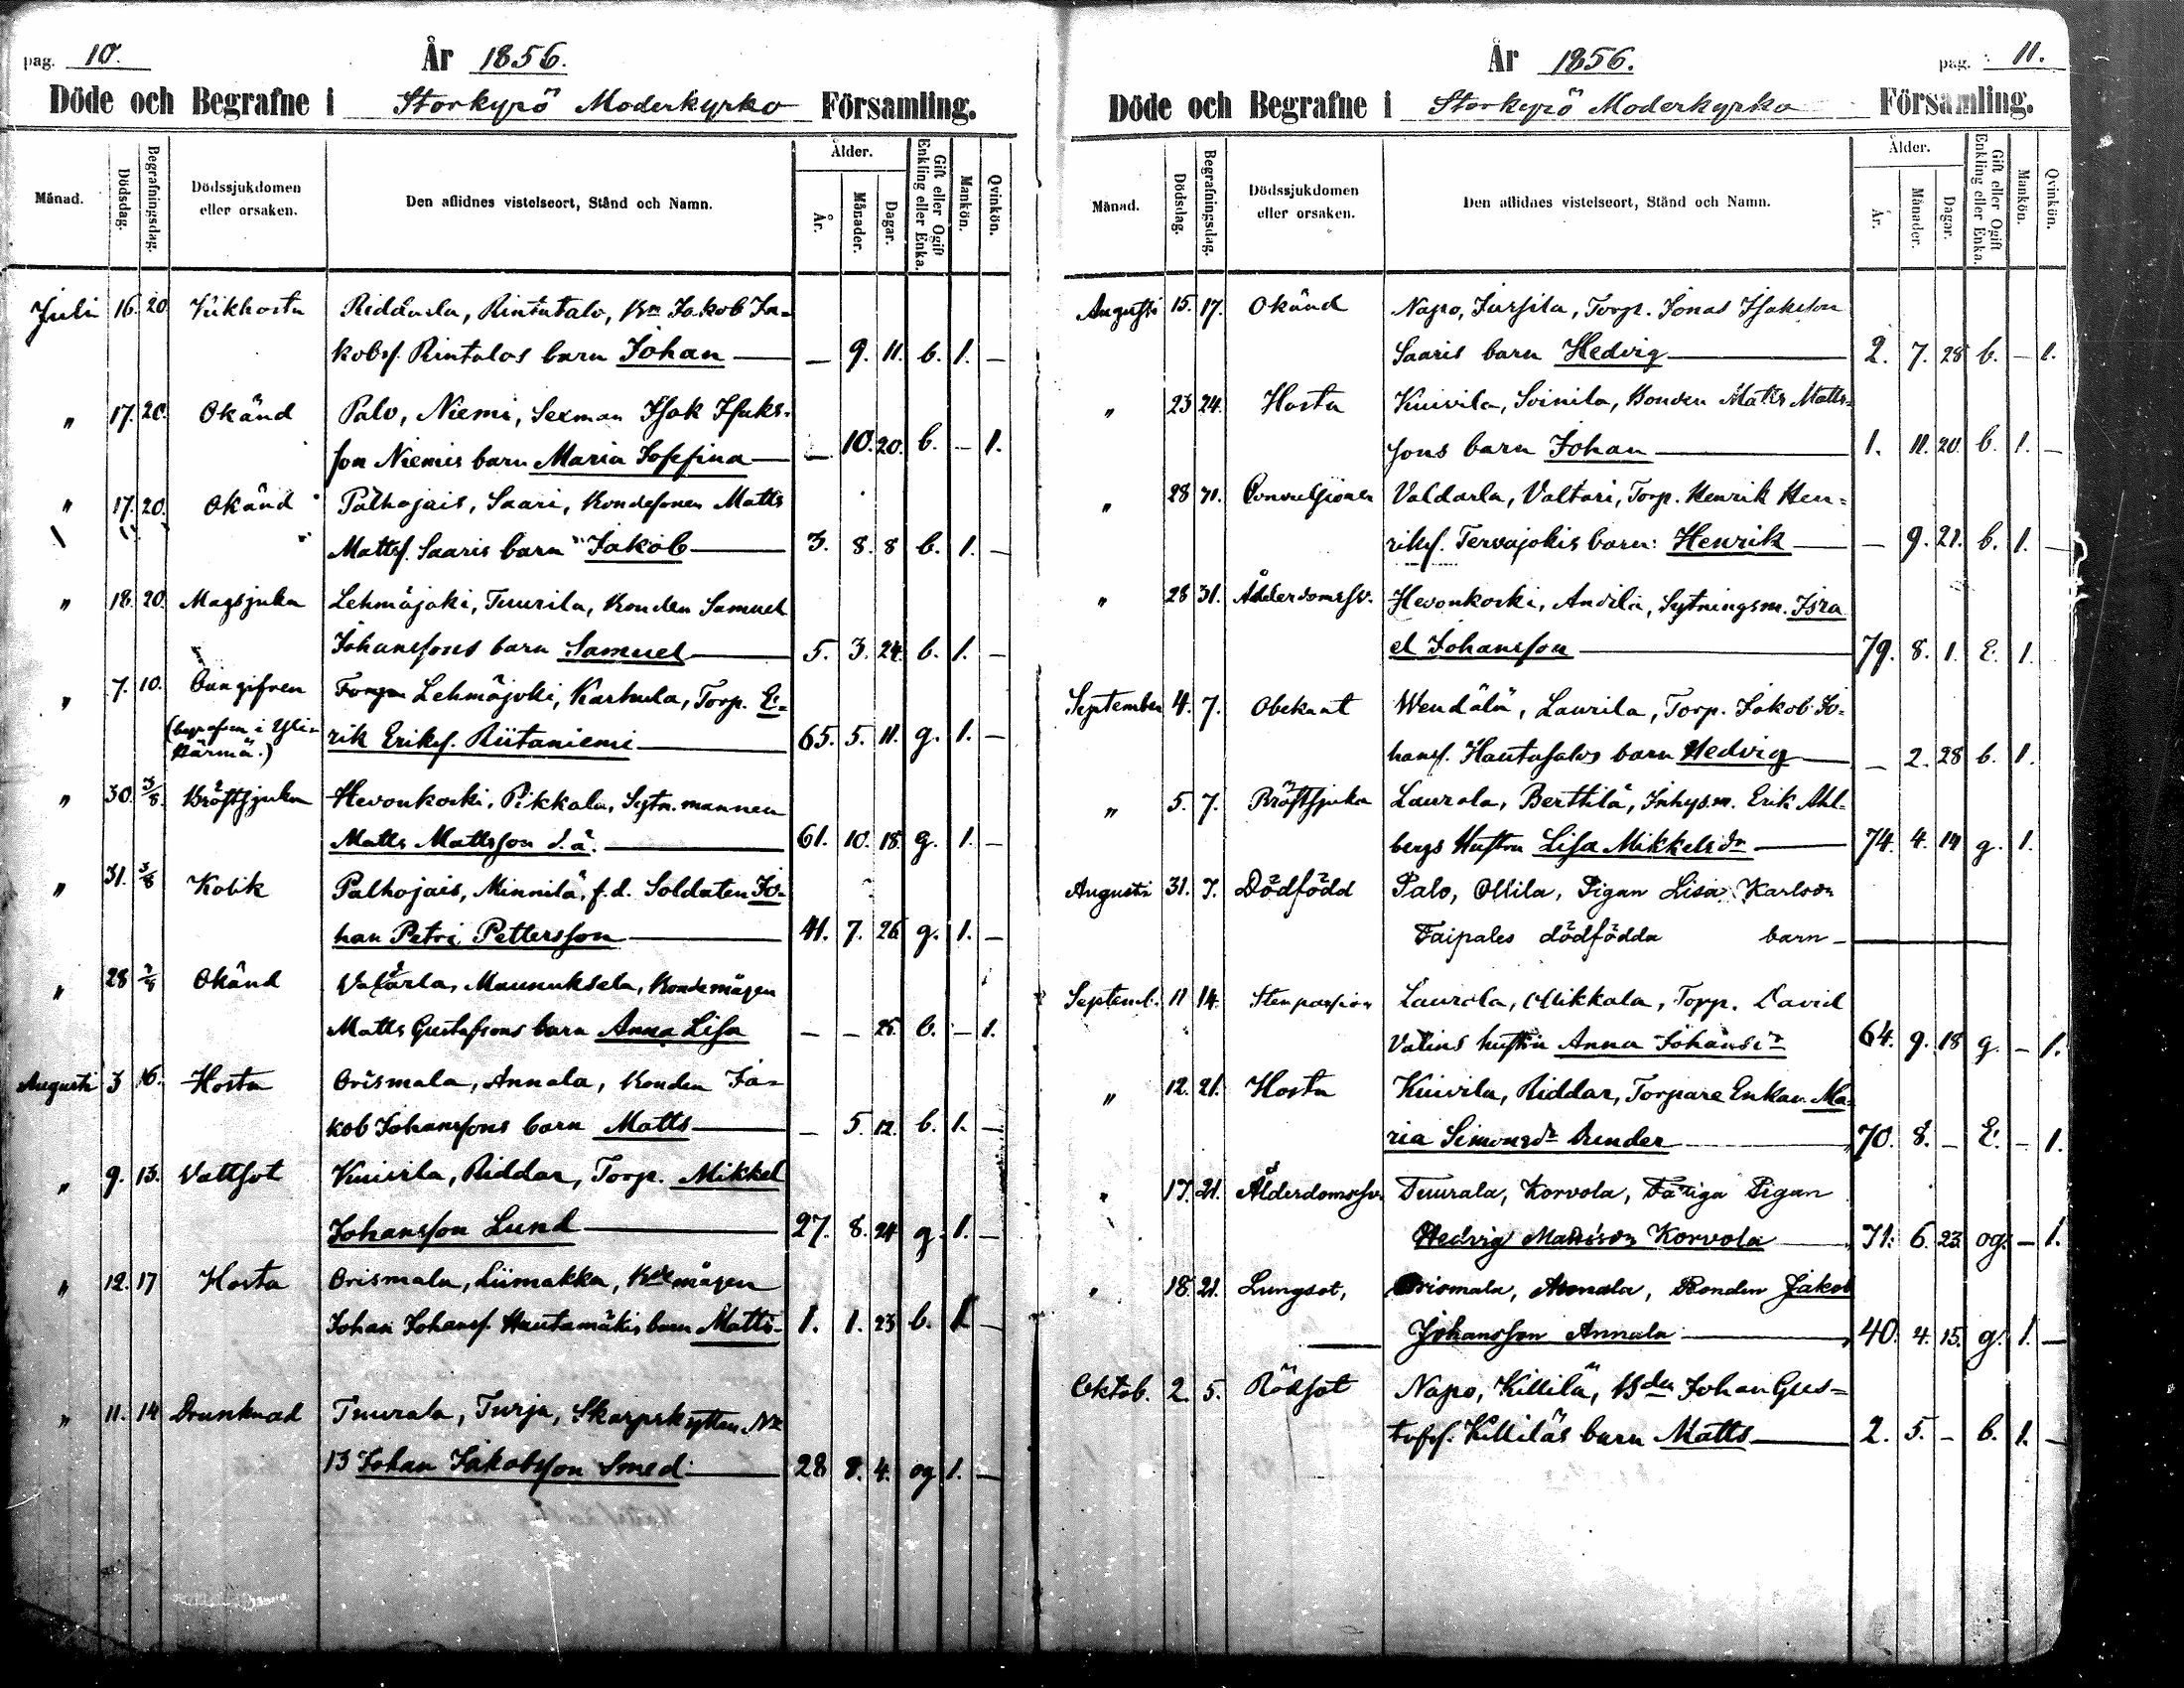 pag. 10.
År 1856.
Döde och Begrafne i Storkyrö Moderkyrko Församling.
Månad. Dödsdag. Begrafningsdag. Dödssjukdomen eller orsaken. Den aflidnes vistelseort, Stånd och Namn. Ålder. År. Månader. Dagar. Gift eller Ogift Enkling eller Enka. Mankön. Qvinkön.
Juli 16. 20 Kikhosta Riddaala, Rintatalo, Bn Jakob Ja-
kobs. Rintalas barn Johan — 9. 11. b. 1. —
" 17. 20. Okänd Palo, Niemi, Sexman Isak Isaks-
son Niemis barn Maria Soffina — 10. 20. b. — 1.
" 17. 20. Okänd Pälhojais, Saari, Bondesonen Matts
Mattss. Saaris barn Jakob 3. 8. 8 b. 1. —
" 18. 20. Magsjuka Lehmäjoki, Tuurila, Bonden Samuel
Johanssons barn Samuel 5. 3. 24. b. 1. —
" 7. 10. Oangifven Lehmäjoki, Karhula, Torp. E-
(begrafven i Yli- rik Eriks. Riitaniemi 65. 5. 11. g. 1. —
Härmä.)
" 30. 3/8. Bröstsjuka Hevonkoski, Pikkala, Sytn. mannen
Matts Mattsson d. ä. 61. 10. 18. g. 1. —
" 31. 3/8 Kolik Palhojais, Minnilä, f.d. Soldaten Jo-
han Petri Pettersson 41. 7. 26 g. 1. —
" 28 Okänd Valtarla, Maunuksela, Bondemågen
Matts Gustafsons barn Anna Lisa — — 25. b. — 1.
Augusti 3 16. Hosta Orismala, Annala, Bonden Ja-
kob Johanssons barn Matts — 5. 12. b. 1. —
" 9. 13. Vattsot Kuivila, Riddar, Torp. Mikkel
Johansson Lund 27. 8. 24 g. 1. —
" 12. 17 Hosta Orismala, Liimakka, Bdemågen
Johan Johans. Hautamäkis barn Matts 1. 1. 23 b. 1 —
" 11. 14 Drunknad Tuurala, Turja, Skarpskytten No
13 Johan Jakobsson Smed 28 8. 4. og 1. —
År 1856.
pag. 11.
Döde och Begrafne i Storkyrö Moderkyrko Församling.
Månad. Dödsdag. Begrafningsdag. Dödssjukdomen eller orsaken. Den aflidnes vistelseort, Stånd och Namn. Ålder. År. Månader. Dagar. Gift eller Ogift Enkling eller Enka. Mankön. Qvinkön.
Augusti 15. 17. Okänd Napo, Jursila, Torp. Jonas Isakson
Saaris barn Hedvig 2. 7. 28 b. — 1.
" 23 24. Hosta Kuivila, Soinila, Bonden Matts Matts-
sons barn Johan 1. 11. 20. b. 1. —
" 28 31. Convulsioner Valdarla, Valtari, Torp. Henrik Hen-
riks. Tervajokis barn: Henrik — 9. 21. b. 1. —
" 28 31. Ålderdomssv. Hevonkoski, Andila, Sytningsm. Isra
el Johansson 79. 8. 1. E. 1.
September 4. 7. Obekant Wendälä, Laurila, Torp. Jakob Jo-
hans. Hautasalos barn Hedvig — 2. 28 b. 1.
" 5. 7. Bröstsjuka Laurola, Berttilä, Inhys.m. Erik Ahl-
bergs Hustru Lisa Mikkelsdr 74. 4. 14 g. 1.
Augusti 31. 7. Dödfödd Palo, Ollila, Pigan Lisa Karlsdr
Taipales dödfödda barn
Septemb. 11 14. Stenpassion Laurola, Mikkala, Torp. David
Valins hustru Anna Johansdr 64. 9. 18 g. — 1.
" 12. 21. Hosta Kuivila, Riddar, Torpare Enkan Ma-
ria Simonsdr Runder 70. 8. — E. — 1.
" 17. 21. Ålderdomssv. Tuurala, Korvola, Fattiga Pigan
Hedvig Mattsdr Korvola 71. 6. 23. og. — 1.
" 18. 21. Lungsot, Orismala, Annala, Bonden Jakob
Johansson Annala 40. 4. 15. g. 1. —
Oktob. 2. 5. Rödsot Napo, Killilä, Bden Johan Gus-
tafs. Killiläs barn Matts 2. 5. — b. 1. —